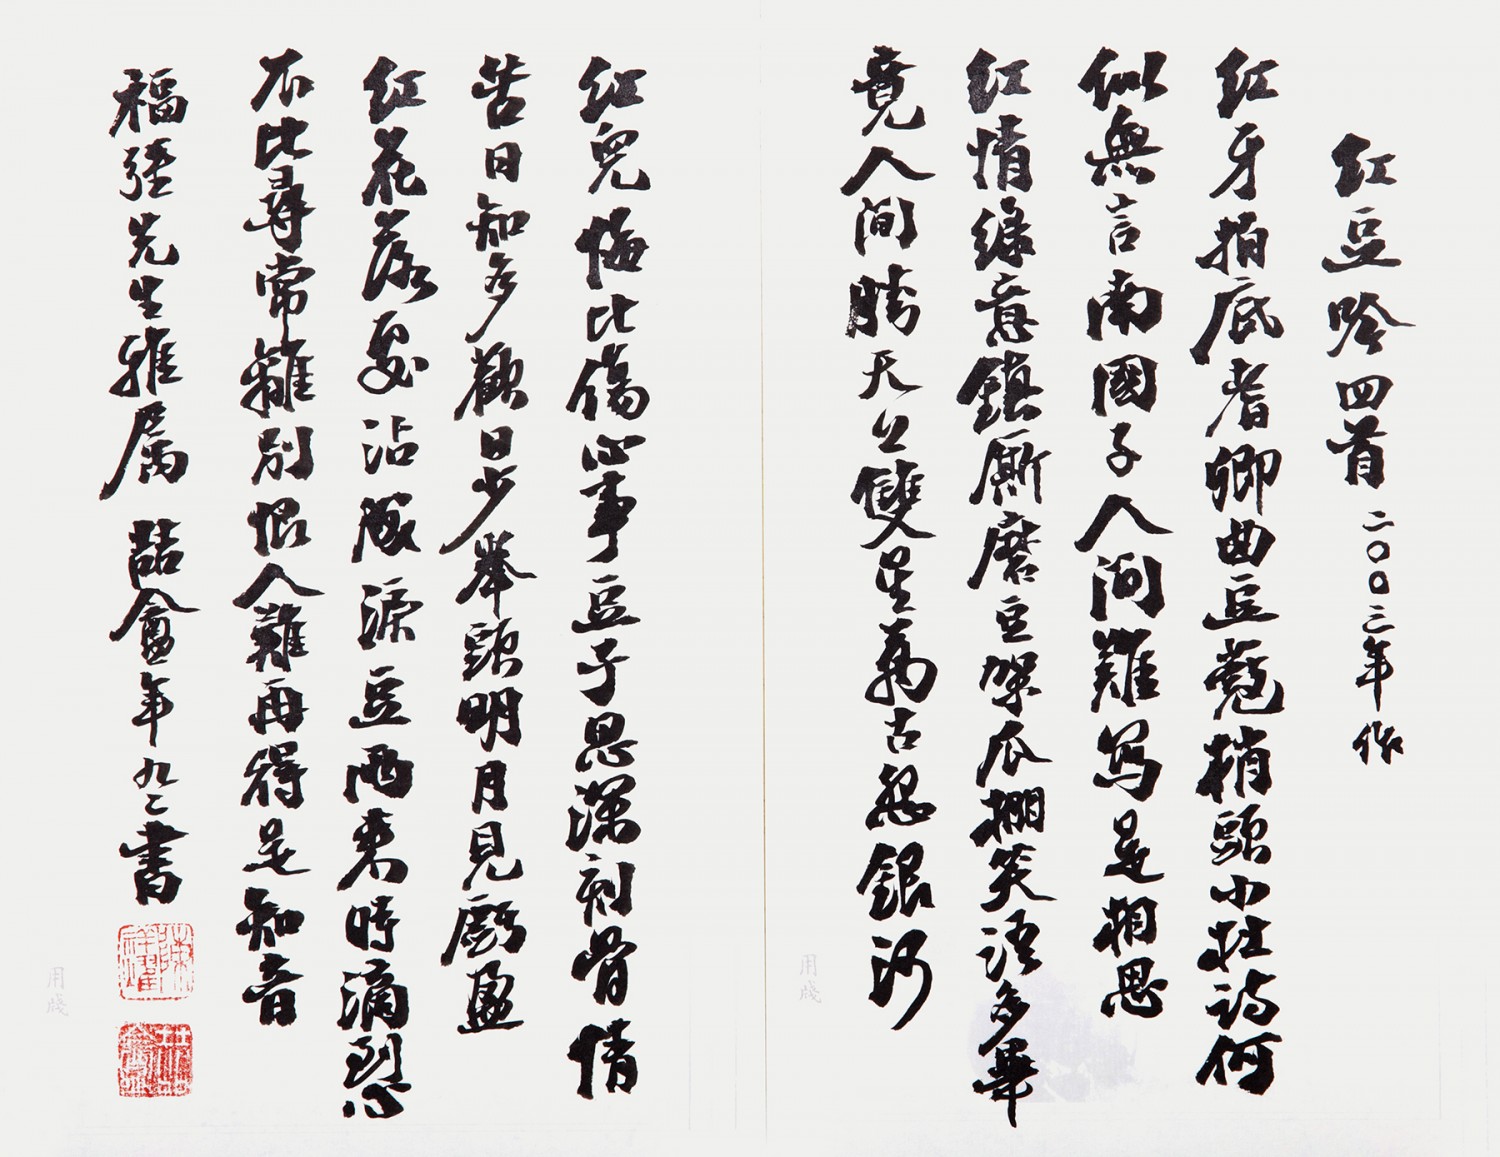 红豆吟四首 二〇〇三年作
红牙拍底耆卿曲豆蔻梢頭小杜詩何
似無言南國子人间難寫是相思
红情綠意鎮厮磨豆架瓜棚笑語多畢
竟人间勝天上雙星萬古怨銀河
红兒悔比傷心事豆子思深刻骨情
苦日知多歡日少舉頭明月見虧盈
红花落處沾殘淚豆雨來時滴到心
不比尋常離別恨人難再得是知音
福强先生雅属 喆盦年九二書
陳祥耀
喆盦
用牋
用牋